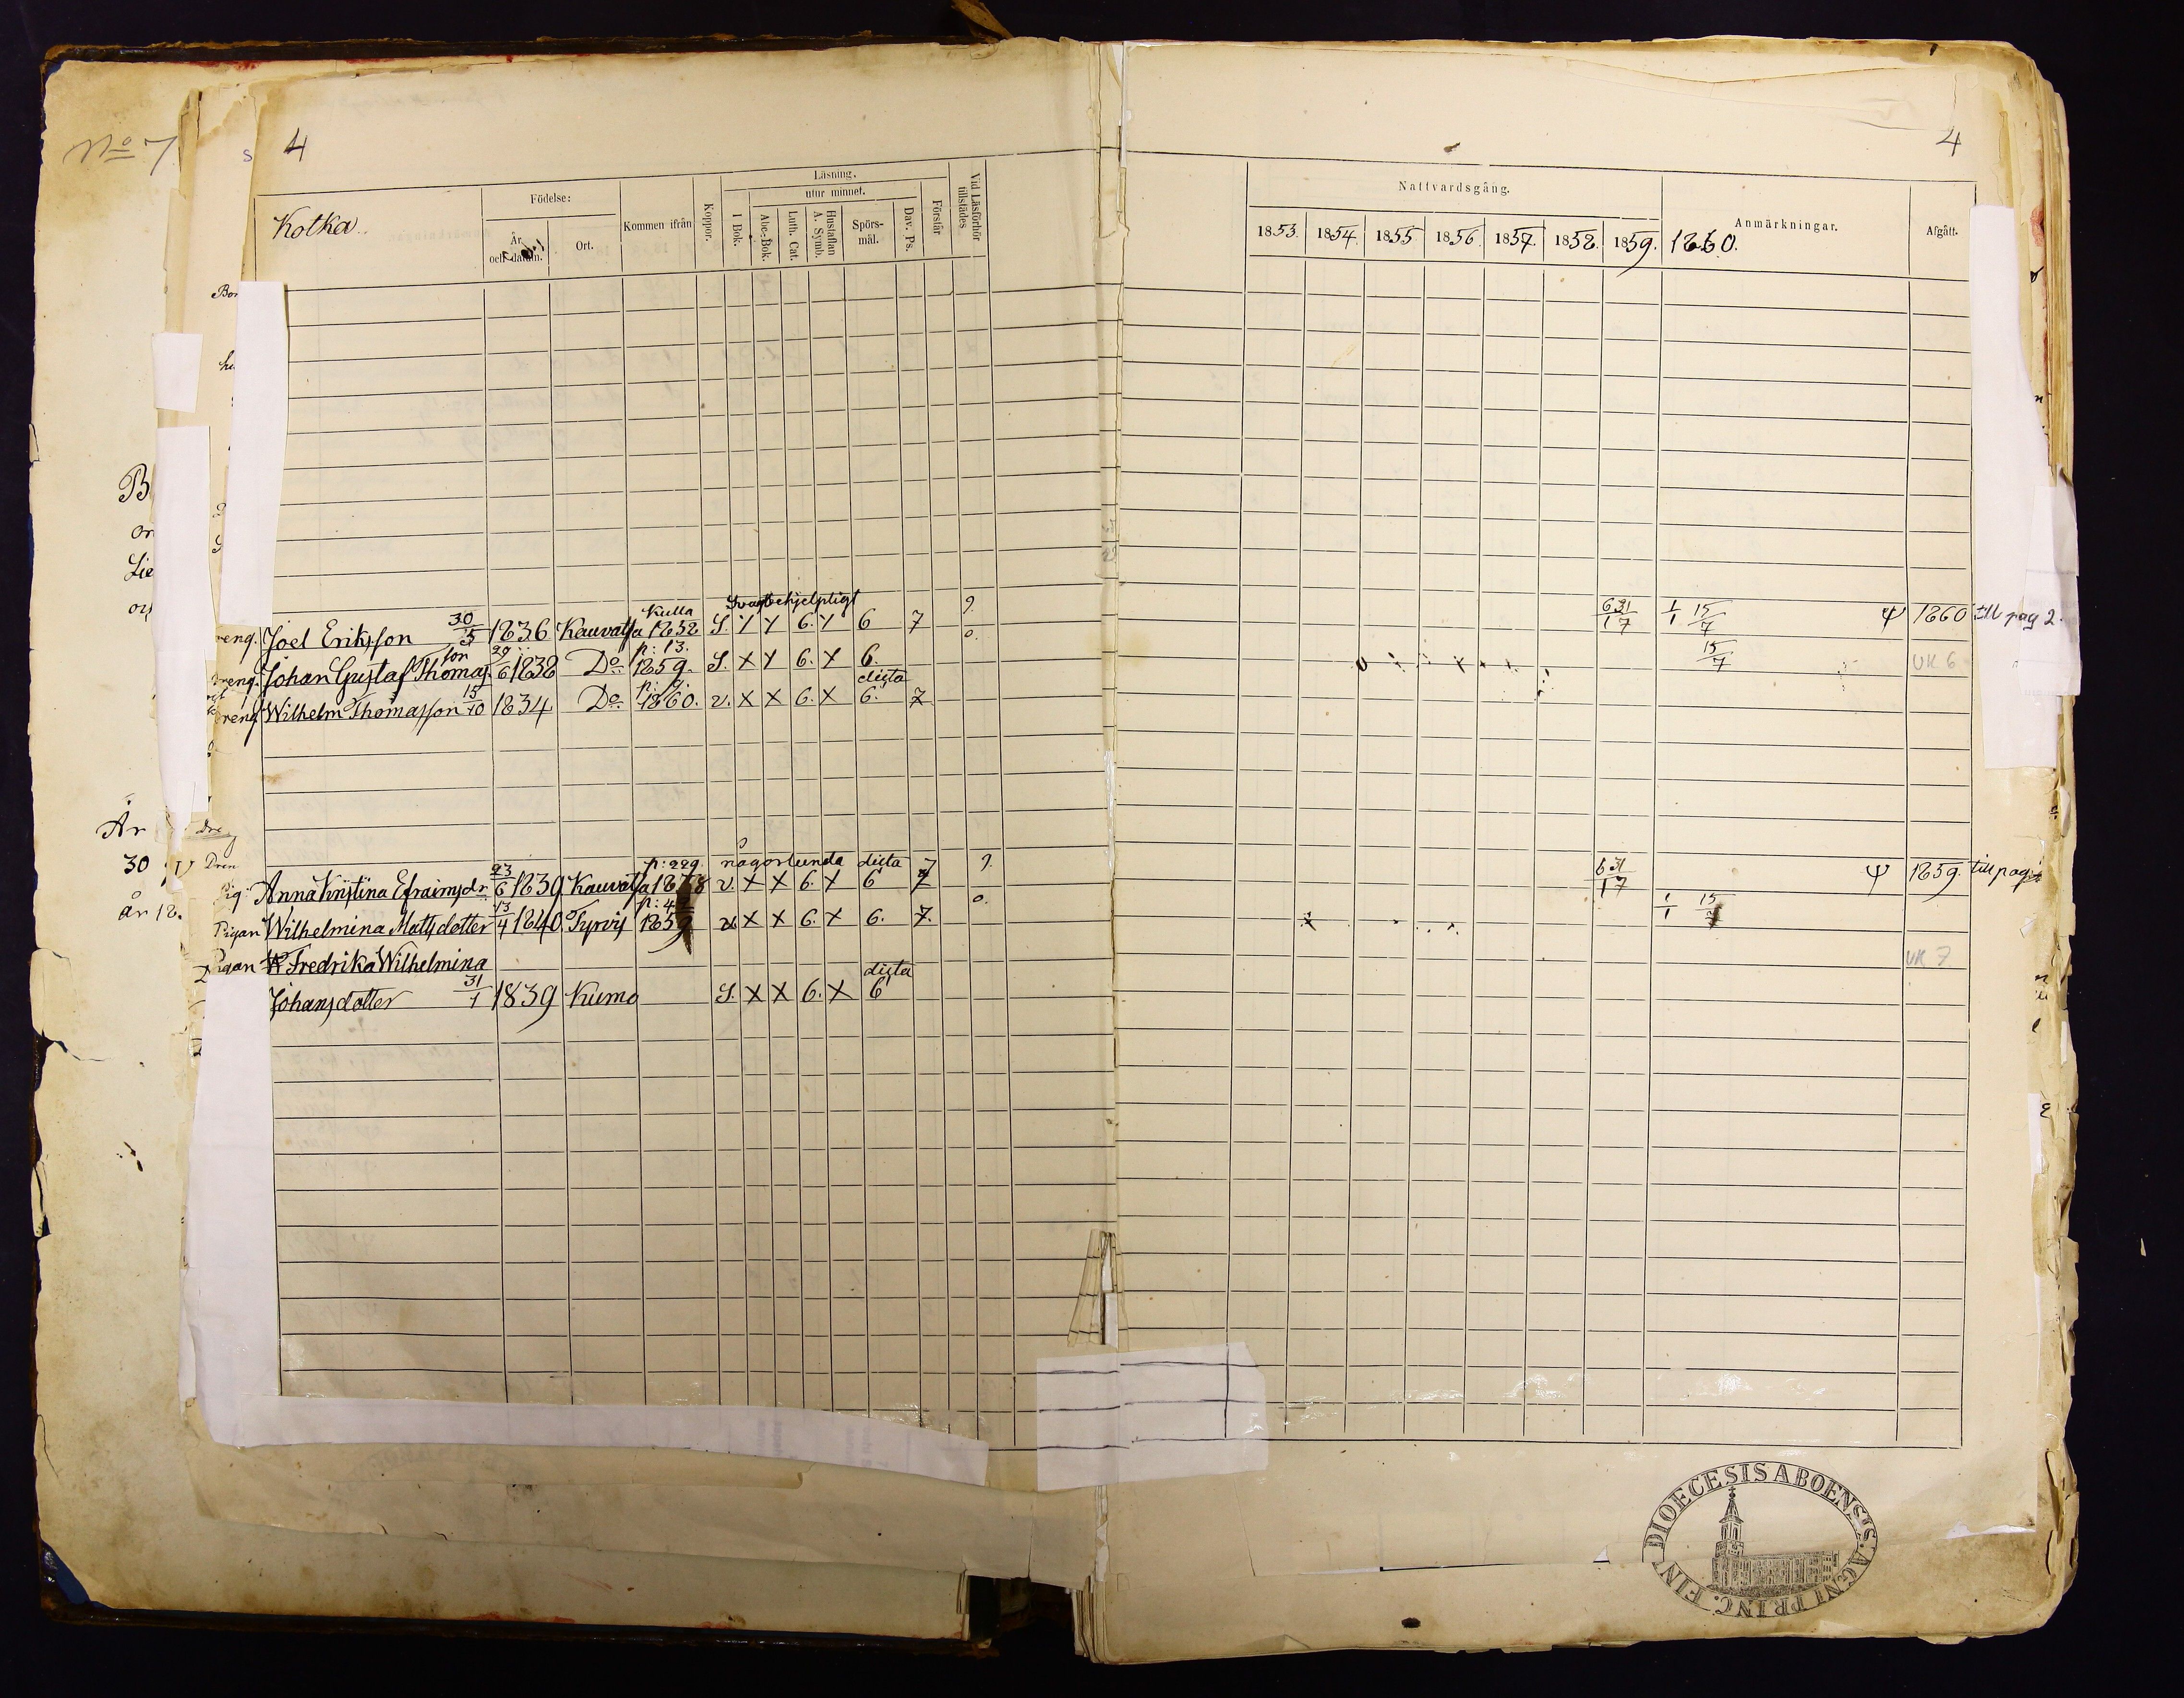 No 7
4
4
Kotka.
Födelse:
År och datum.
Ort.
Kommen ifrån
Koppor.
Läsning.
utur minnet.
I Bok.
Abc-Bok.
Luth. Cat.
Hustaflan A. Symb.
Spörs-mål.
Dav. Ps.
Förstår
Vid Läsförhör tillstädes
Nattvardsgång.
1853. 1854. 1855 1856. 1857. 1858. 1859. 1860.
Anmärkningar.
Afgått.
Kulla Svagt behjelpligt 9.
reng. Joel Eriksson 30/5 1836 Kauvatsa 1858 S. Y Y 6. Y 6 7 6 31/1 7 1/1 15/7 Ψ 1860 till pag 2.
son p: 13. 0.
Dreng. Johan Gustaf Thomas 29/6 1838 Do 1859. S. X Y 6. X 6. 15/7 UK 6
dicta
Dreng Wilhelm Thomasson 15/10 1834 Do 1860. v. X X 6. X 6. 7
p: 229. någorlunda dicta 7 9.
Pig. Anna Kristina Efraimsdr. 23/6 1839 Kauvatsa 1858 v. X X 6. X 6 7 6 31/1 7 Ψ 1859. till pag
0.
Pigan Wilhelmina Mattsdotter 13/4 1840 Tyrvis 1859 X X 6. X 6. 7. 1/1 15/7
Pigan Fredrika Wilhelmina UK 7
dicta
Johansdotter 31/1 1839 Kumo S. X X 6. X 6
B
Lie
År
30
år 18.
Dren
DIOECESIS ABOENSIS. AGNI PRINC. FIN